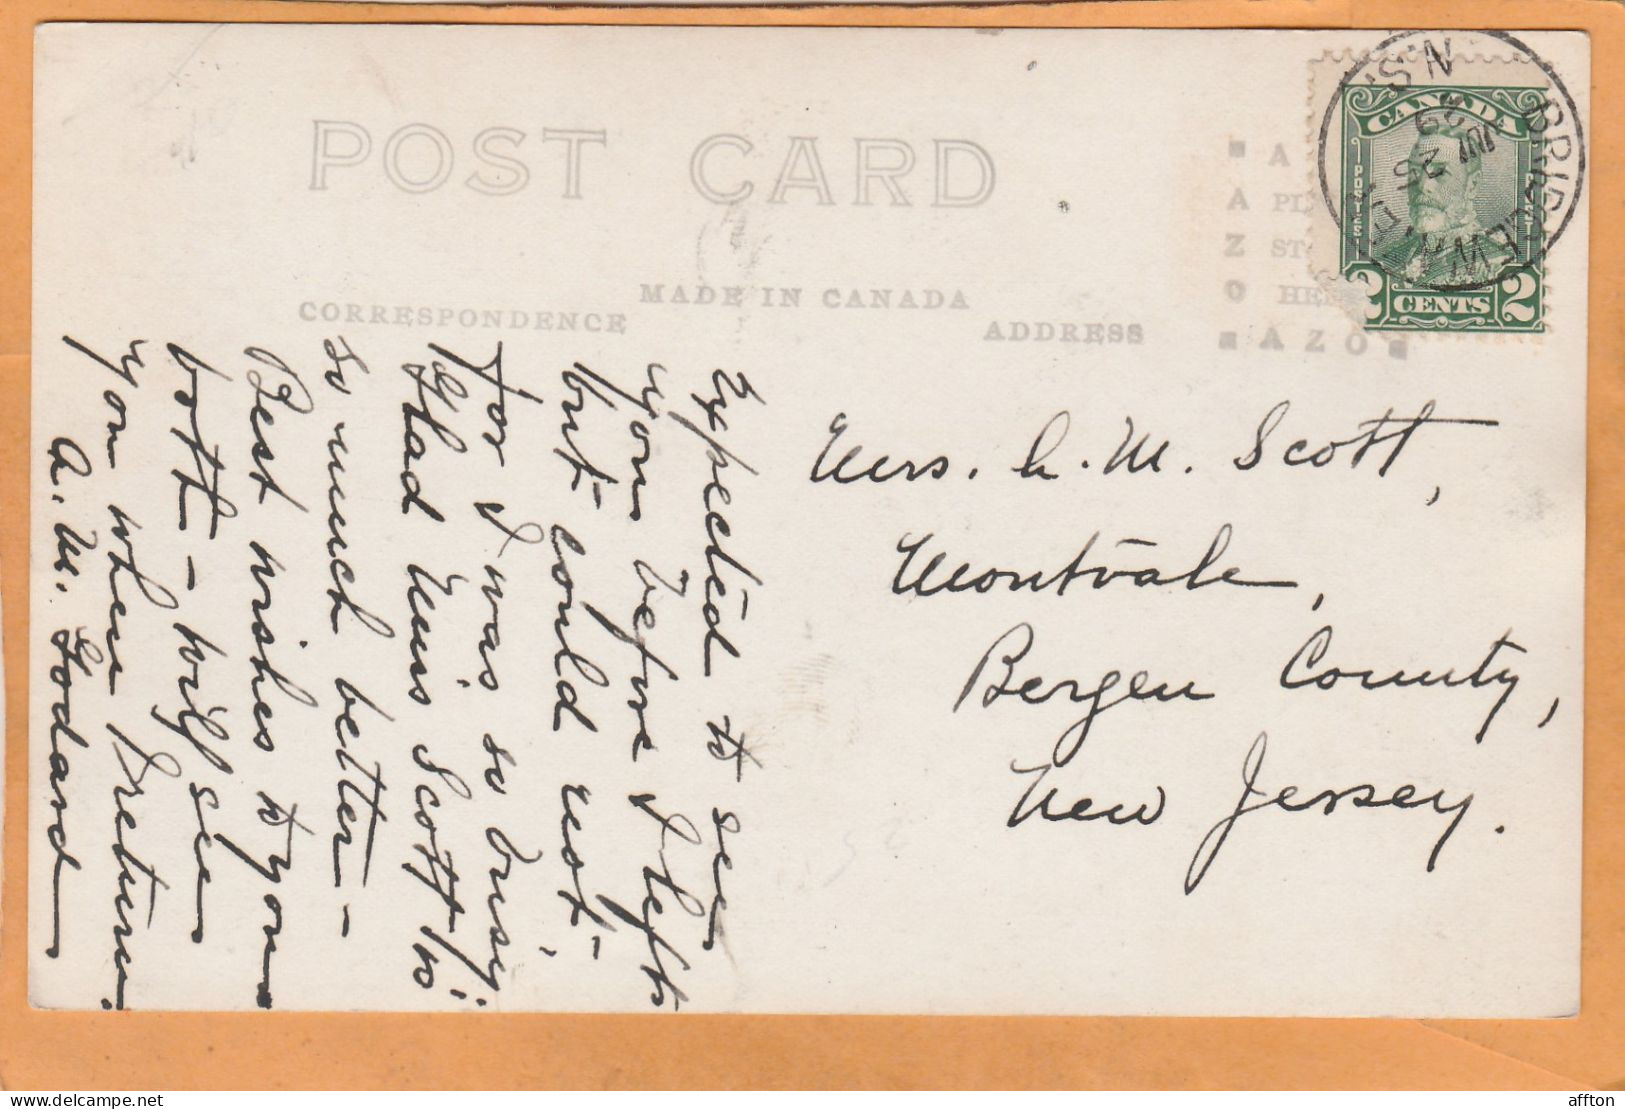 POST CARD
CORRESPONDENCE
MADE IN CANADA
ADDRESS
A
A PL
Z ST
O HE
AZO
CANADA
POSTES
POSTAGE
2 CENTS 2
BRIDGEWATER
N.S.
29
Expected to see
you before I left
but could not -
for I was so busy,
Glad Miss Scott is
so much better -
Best wishes to you
both - will see
you when I return.
A. M. Godard
Mrs. A. M. Scott,
Montvale,
Bergen County,
New Jersey.
affton